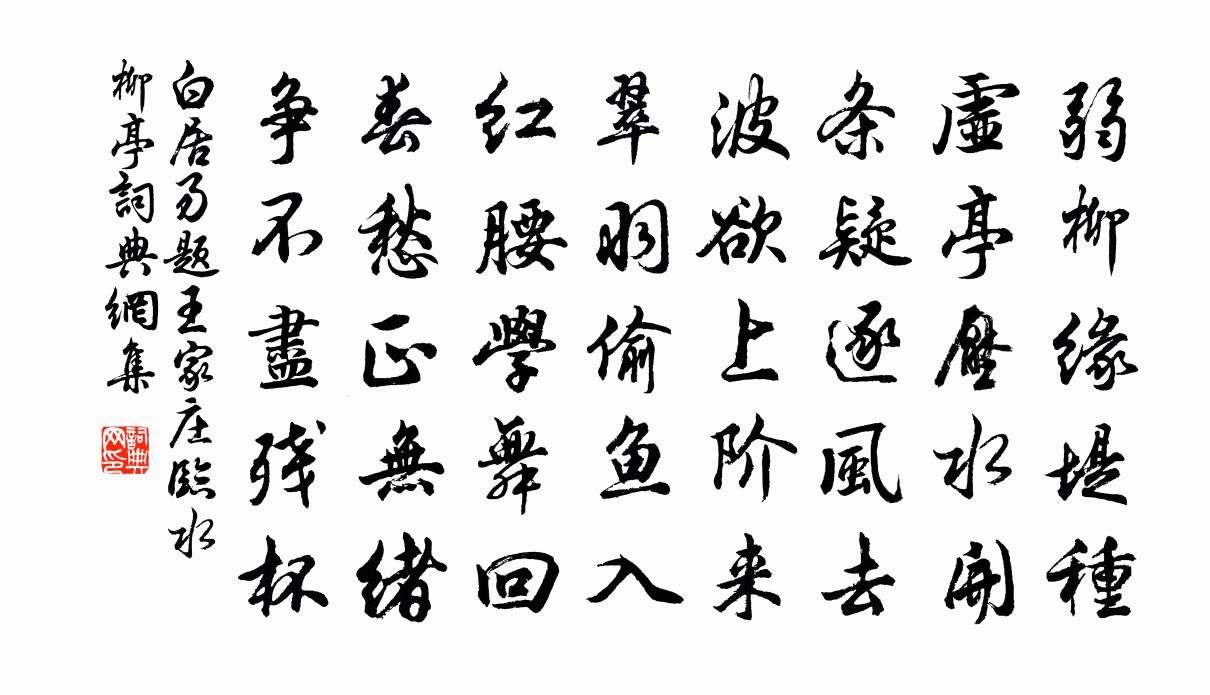 弱柳缘堤種
虛亭壓水開
条疑逐風去
波欲上阶来
翠羽偷鱼入
红腰學舞回
春愁正無绪
争不盡残杯
白居易题王家庄臨水
柳亭詞典網集
詞典网印